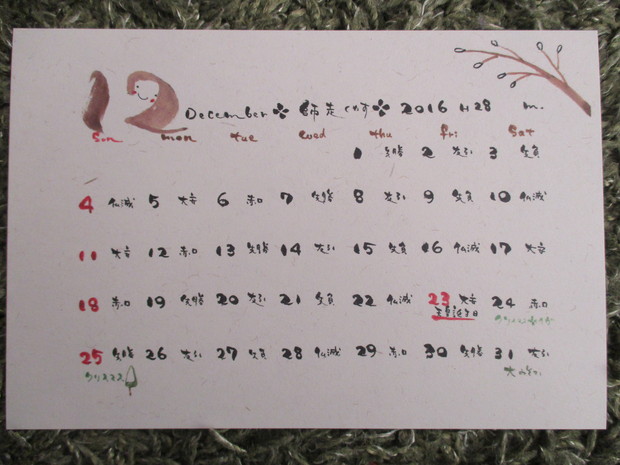 12 December 師走 しわす 2016 H28 m.
sun mon tue wed thu fri sat
1 先勝 2 友引 3 先負
4 仏滅 5 大安 6 赤口 7 先勝 8 友引 9 先負 10 仏滅
11 大安 12 赤口 13 先勝 14 友引 15 先負 16 仏滅 17 大安
18 赤口 19 先勝 20 友引 21 先負 22 仏滅 23 大安 24 赤口
天皇誕生日 クリスマスイヴ
25 先勝 26 友引 27 先負 28 仏滅 29 赤口 30 先勝 31 友引
クリスマス 大みそか